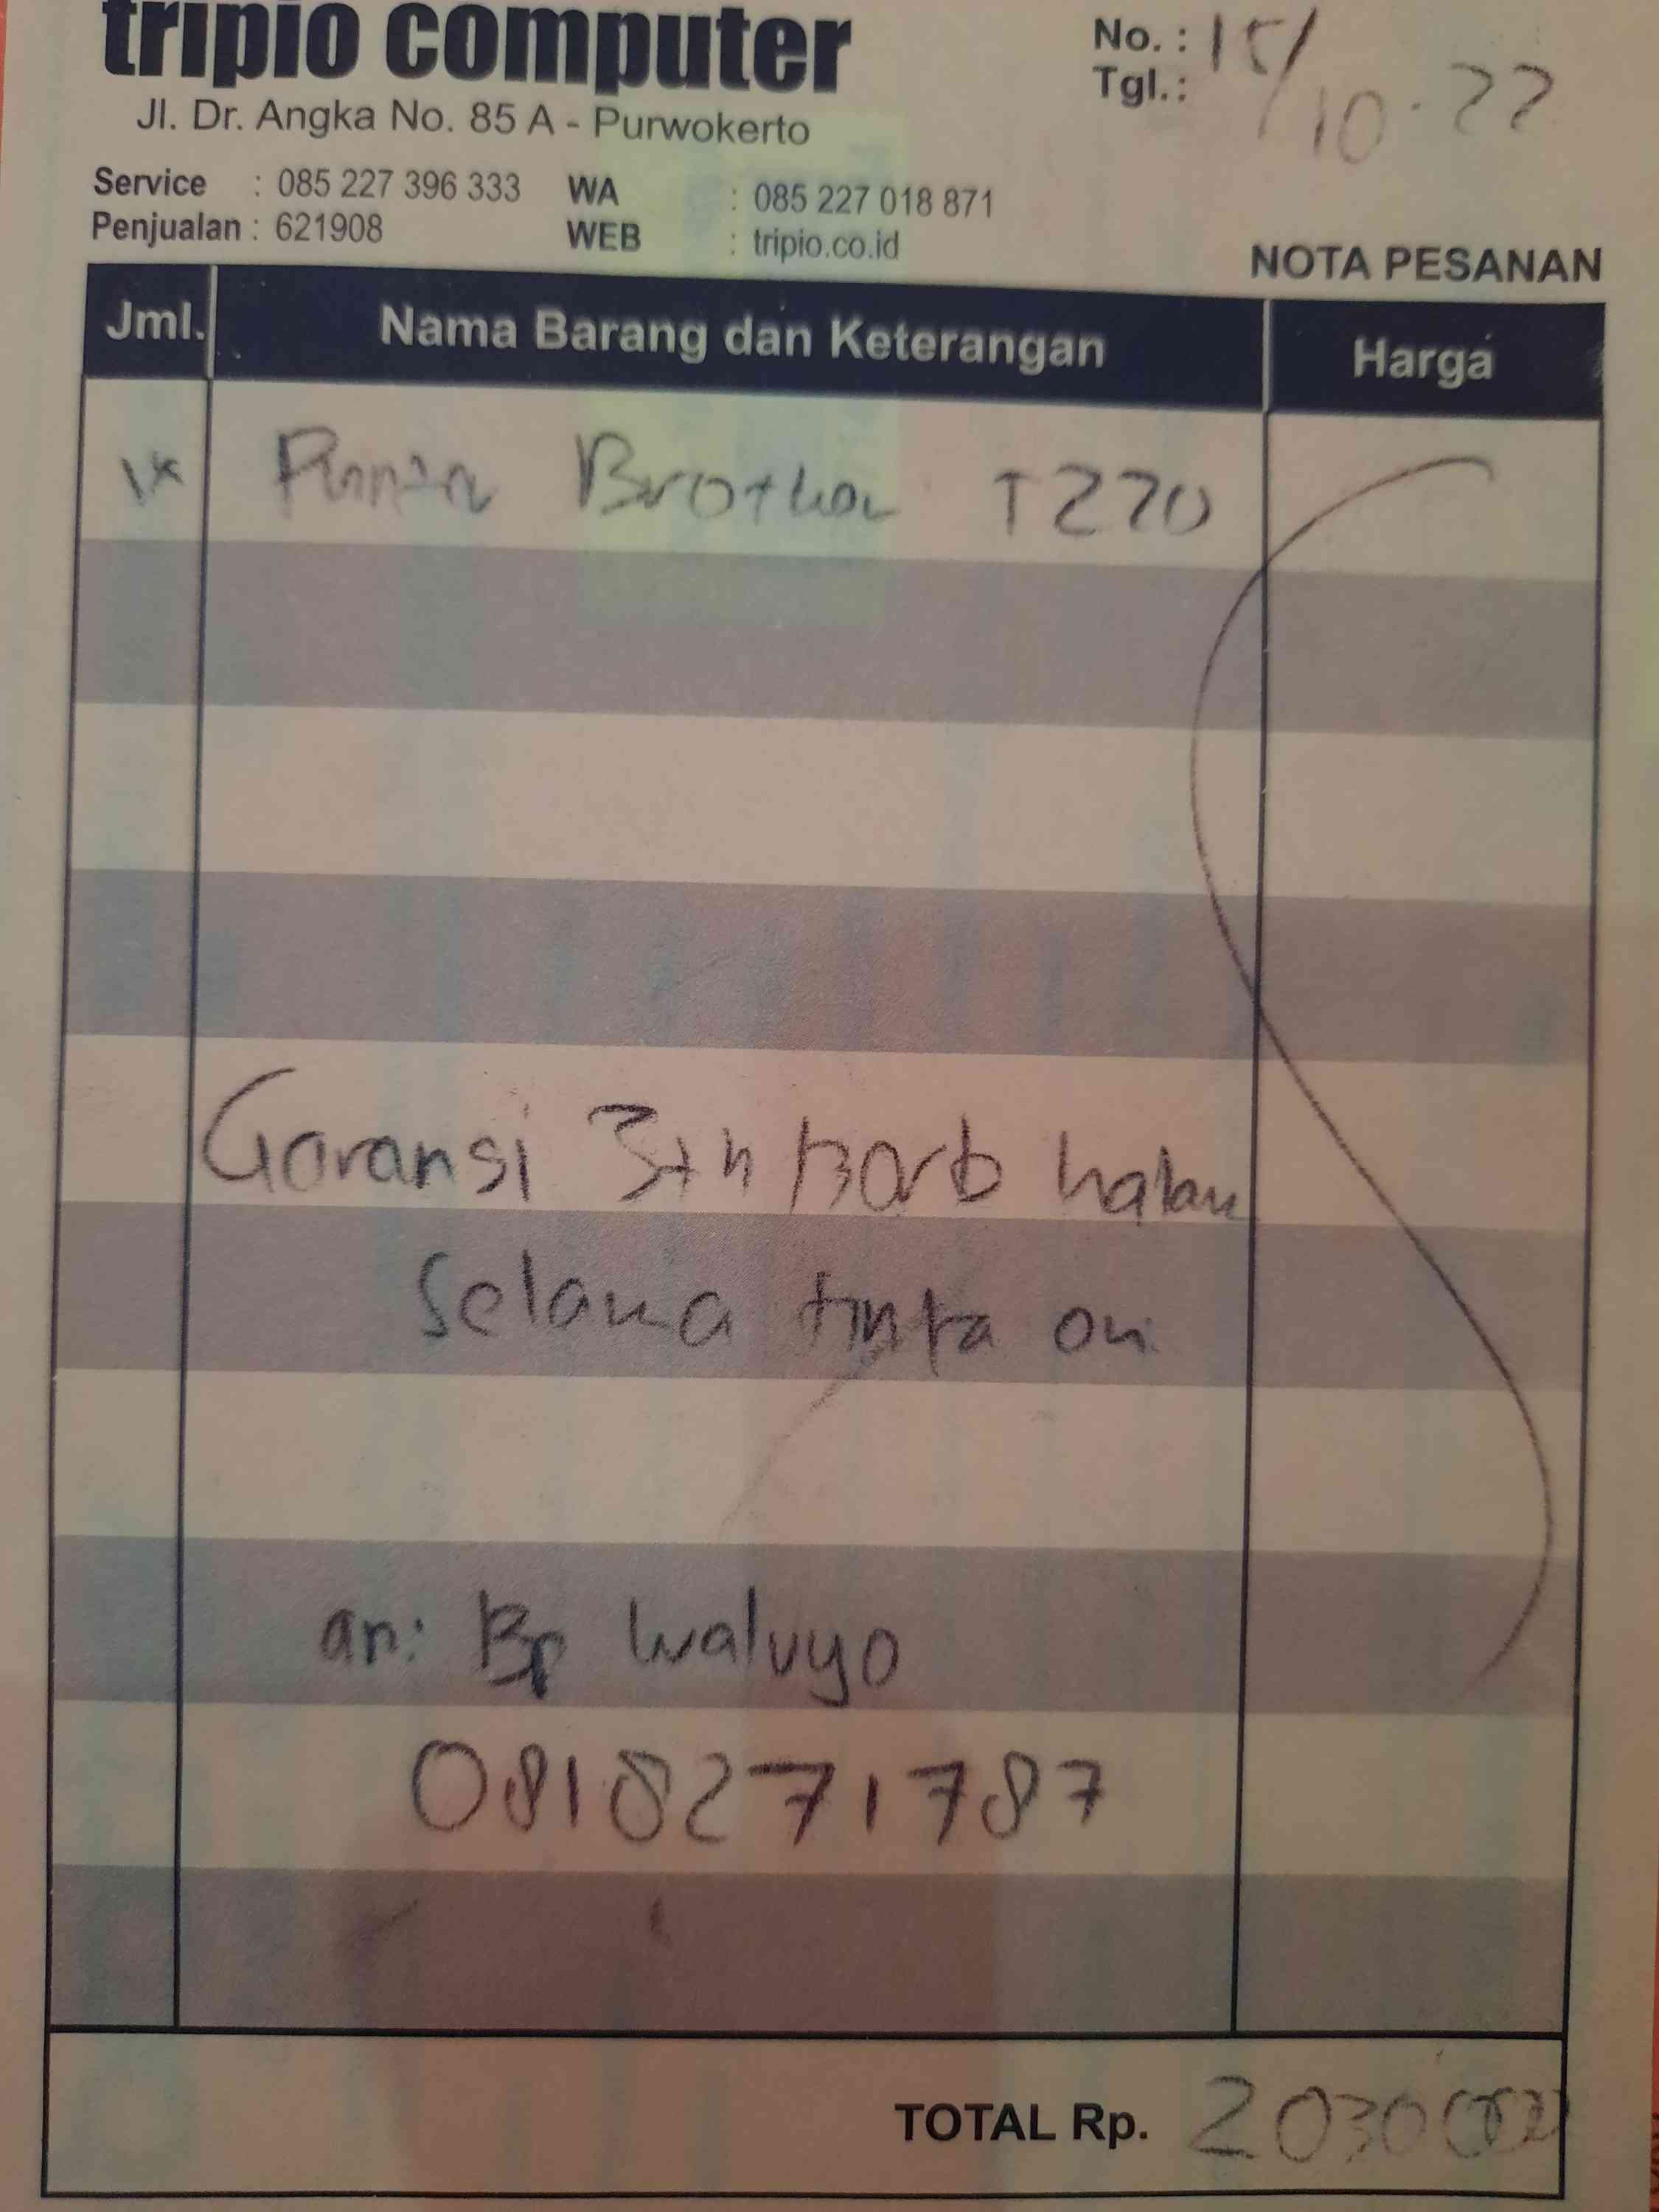 tripio computer
Jl. Dr. Angka No. 85 A - Purwokerto
No. : 15/10.22
Tgl. :
Service : 085 227 396 333 WA : 085 227 018 871
Penjualan : 621908 WEB : tripio.co.id
NOTA PESANAN
Jml. Nama Barang dan Keterangan Harga
1x Brother T220
Garansi 3th
Selama tinta ori
an: Bp Waluyo
0818271787
TOTAL Rp. 2030000